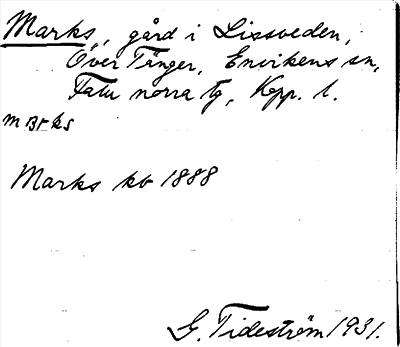 Marks, gård i Lissveden,
Över Tänger, Envikens sn,
Falu norra tg, Kpp. l.
marks
Marks kb 1888
G. Tideström 1931.